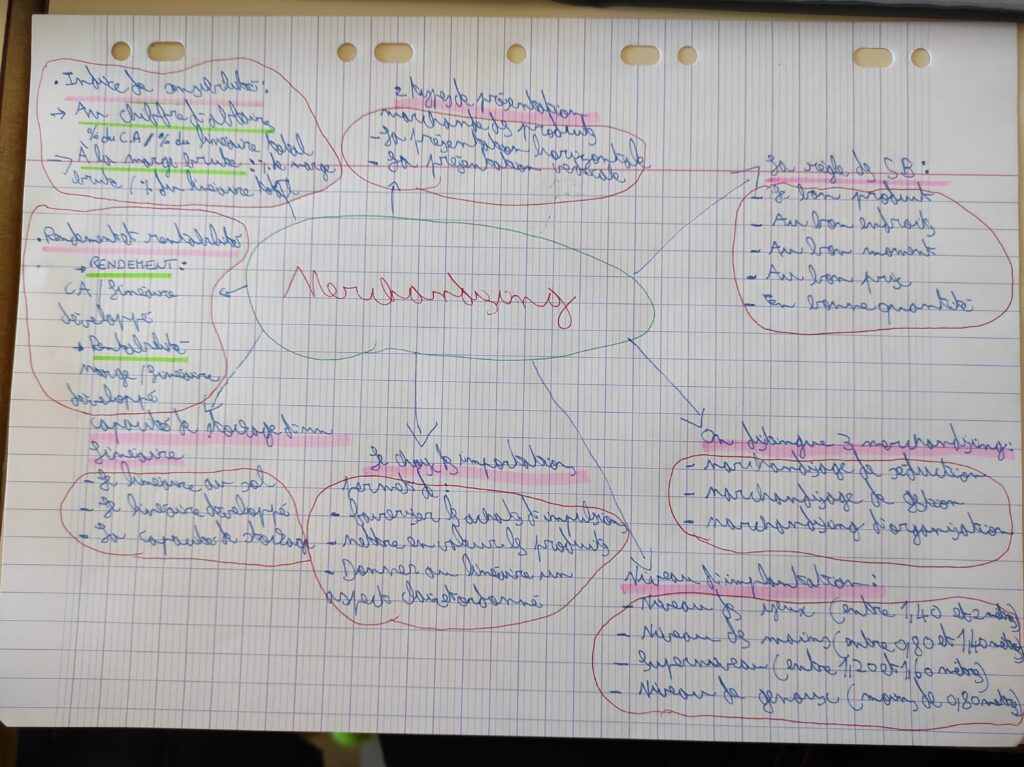 Merchandizing
. Indice de sensibilité :
→ Au chiffre d'affaire
% du CA / % du linéaire total
→ À la marge brute : % de marge
brute / % du linéaire total
2 types de présentation
marchande des produits
- La présentation horizontale
- La présentation verticale
La règle des 5B :
- Le bon produit
- Au bon endroit
- Au bon moment
- Au bon prix
- En bonne quantité
. Rendement et rentabilité
→ RENDEMENT :
CA / Linéaire
développé
→ Rentabilité
Marge / Linéaire
développé
Capacité de stockage d'un
linéaire
- Le linéaire au sol
- Le linéaire développé
- La capacité de stockage
Le choix implantation
permet de :
- favorizer les achats d'impulsion
- mettre en valeur les produits
- Donner au linéaire un
aspect clair et ordonné
On distingue 3 marchandizing :
- marchandizage de séduction
- marchandizage de gestion
- marchandizing d'organisation
Niveau d'implantation :
- Niveau des yeux (entre 1,40 et 2 mètres)
- Niveau des mains (entre 0,80 et 1,40 mètres)
- Superniveau (entre 1,20 et 1,60 mètres)
- Niveau de genoux (moins de 0,80 mètres)